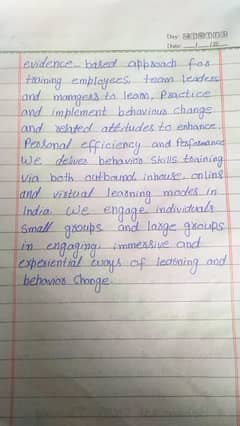 Day:
Date: __/__/20__
evidence-based approach for
training employees, team leaders
and mamgers to learn, Practice
and implement behavious change
and related attitudes to enhance.
Personal efficiency and Performance
We deliver behavior skills training
via both outbound inhouse, online
and virtual learning modes in
India. We engage individuals
small groups and large groups
in engaging, immersive and
experiential ways of learning and
behavior Change.